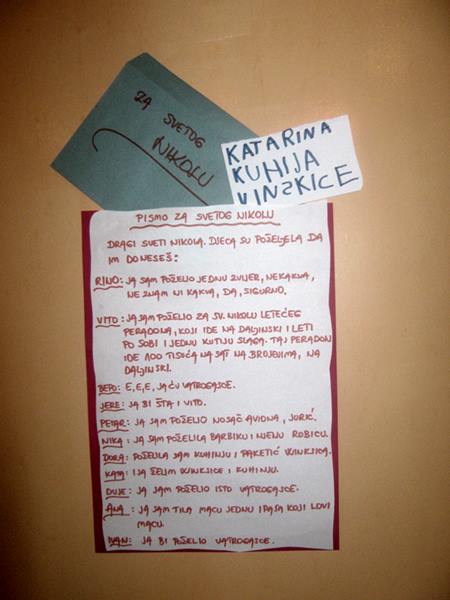 ZA SVETOG
NIKOLU
KATARINA
KUHIJA
VINSKICE
PISMO ZA SVETOG NIKOLU
DRAGI SVETI NIKOLA. DJECA SU POŽELJELA DA
IM DONESEŠ:
RINO: JA SAM POŽELIO JEDNU ZVIJER, NEKAKVA,
NE ZNAM NI KAKVA, DA, SIGURNO.
VITO: JA SAM POŽELIO ZA SV. NIKOLU LETEĆEG
PERADONA, KOJI IDE NA DALJINSKI I LETI
PO SOBI I JEDNU KUTIJU SLAGA. TAJ PERADON
IDE 100 TISUĆA NA SAT NA BROJEVIMA, NA
DALJINSKI.
BEPO: E, E, E, JA ĆU VATROGASCE.
JERE: JA BI ŠTA I VITO.
PETAR: JA SAM POŽELIO NOSAČ AVIONA, JURIĆ.
NIKA: JA SAM POŽELILA BARBIKU I NJENU ROBICU.
DORA: POŽELILA SAM KUHINJU I PAKETIĆ WINKSICA.
KATA: I JA ŽELIM WINKSICE I KUHINJU.
DUJE: JA SAM POŽELIO ISTO VATROGASCE.
ANA: JA SAM TILA MACU JEDNU I PASA KOJI LOVI
MACU.
IVAN: JA BI POŽELIO VATROGASCE.